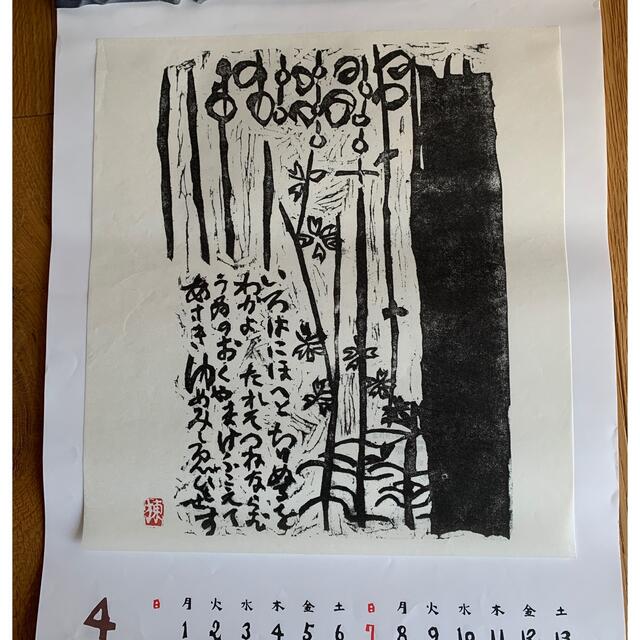 いろはにほへと ちりぬるを
わかよ たれそつねならむ
うゐのおくやまけふこえて
あさき ゆめみし ゑひもせす
棟
4
日 月 火 水 木 金 土 日 月 火 水 木 金 土
1 2 3 4 5 6 7 8 9 10 11 12 13